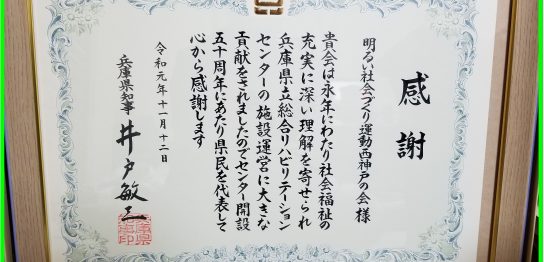 感謝
明るい社会づくり運動西神戸の会様
貴会は永年にわたり社会福祉の
充実に深い理解を寄せられ
兵庫県立総合リハビリテーション
センターの施設運営に大きな
貢献をされましたのでセンター開設
五十周年にあたり県民を代表して
心から感謝します
令和元年十一月十二日
兵庫県知事 井戸敏三